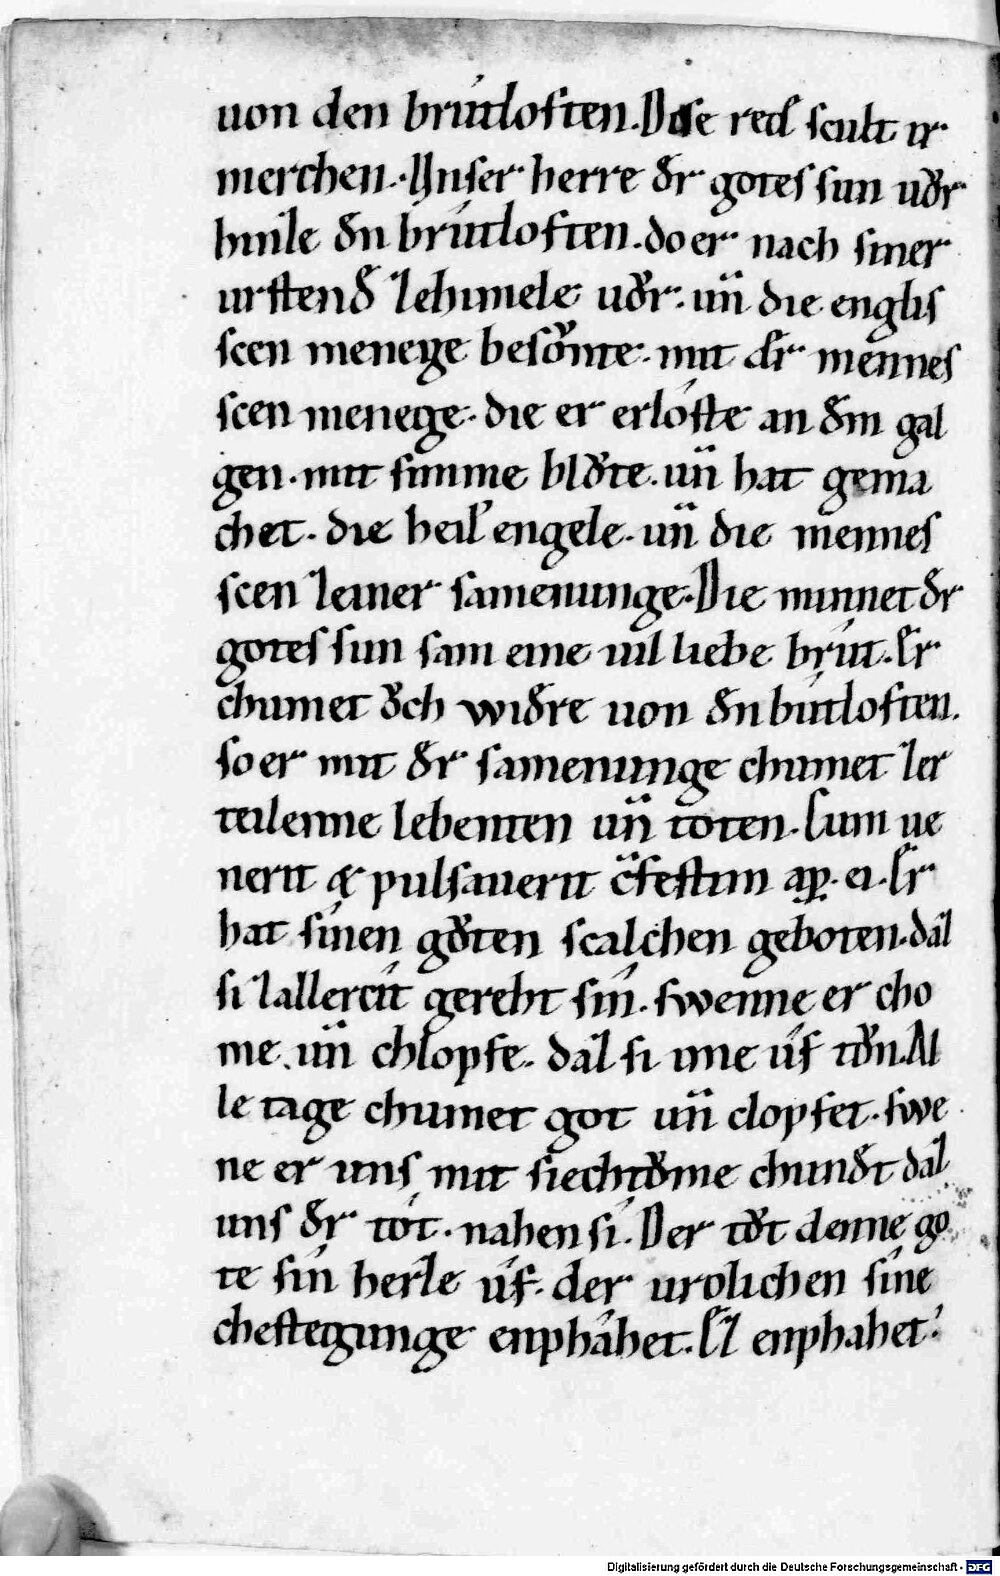 uon den brútloften. Dise red scult ir
merchen. Unser herre d̄r gotes sun uůr
hinze d̄n brútloften. do er nach siner
urstend̄ zehimele uůr. uñ die englis
scen menege besŏmte. mit d̄r mennes
scen menege. die er erlóste an d̄m gal
gen. mit sinme blůte. uñ hat gema
chet. die heil' engele. uñ die mennes
scen zeiner samenunge. Die minnet d̄r
gotes sun sam eine uil liebe brút. Er
chumet ŏch wid̄re uon d̄n bútloften.
so er mit d̄r samenunge chumet zer
teilenne lebenten uñ toten. Cum ue
nerit & pulsauerit c̄festim ap. ei. Er
hat sínen gůten scalchen geboten. daz
si zallercít gereht sín. swenne er cho
me. uñ chlopfe. daz si ime úf tůn. Al
le tage chumet got uñ clopfet. swe
ne er uns mit siechtůme chund̄t daz
uns d̄r tót. nahen sí. Der tůt denne go
te sín herze úf. der urolichen síne
chestegunge enpháhet. Ez enphahet
Digitalisierung gefördert durch die Deutsche Forschungsgemeinschaft - DFG